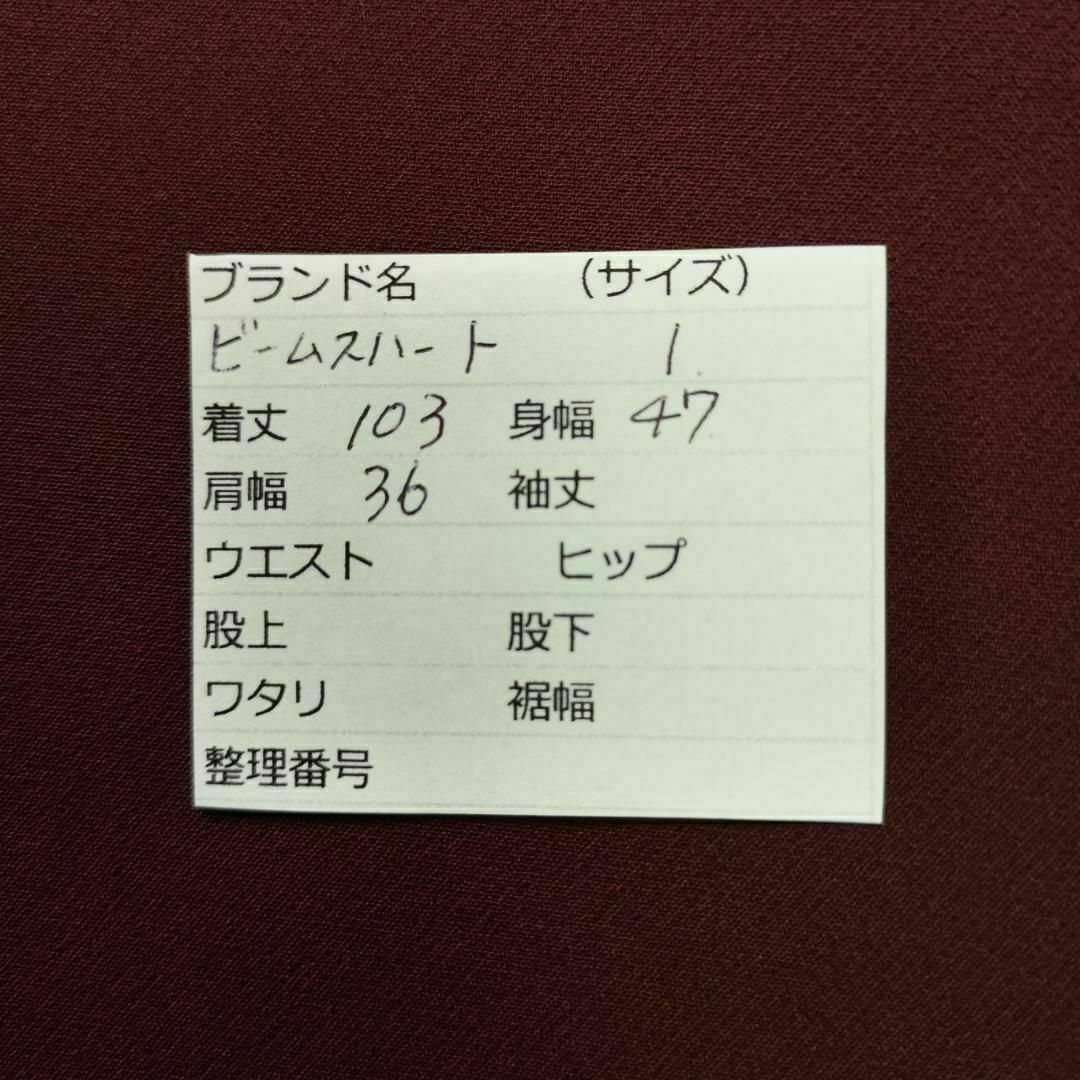 ブランド名 （サイズ）
ビームスハート 1
着丈 103 身幅 47
肩幅 36 袖丈
ウエスト ヒップ
股上 股下
ワタリ 裾幅
整理番号